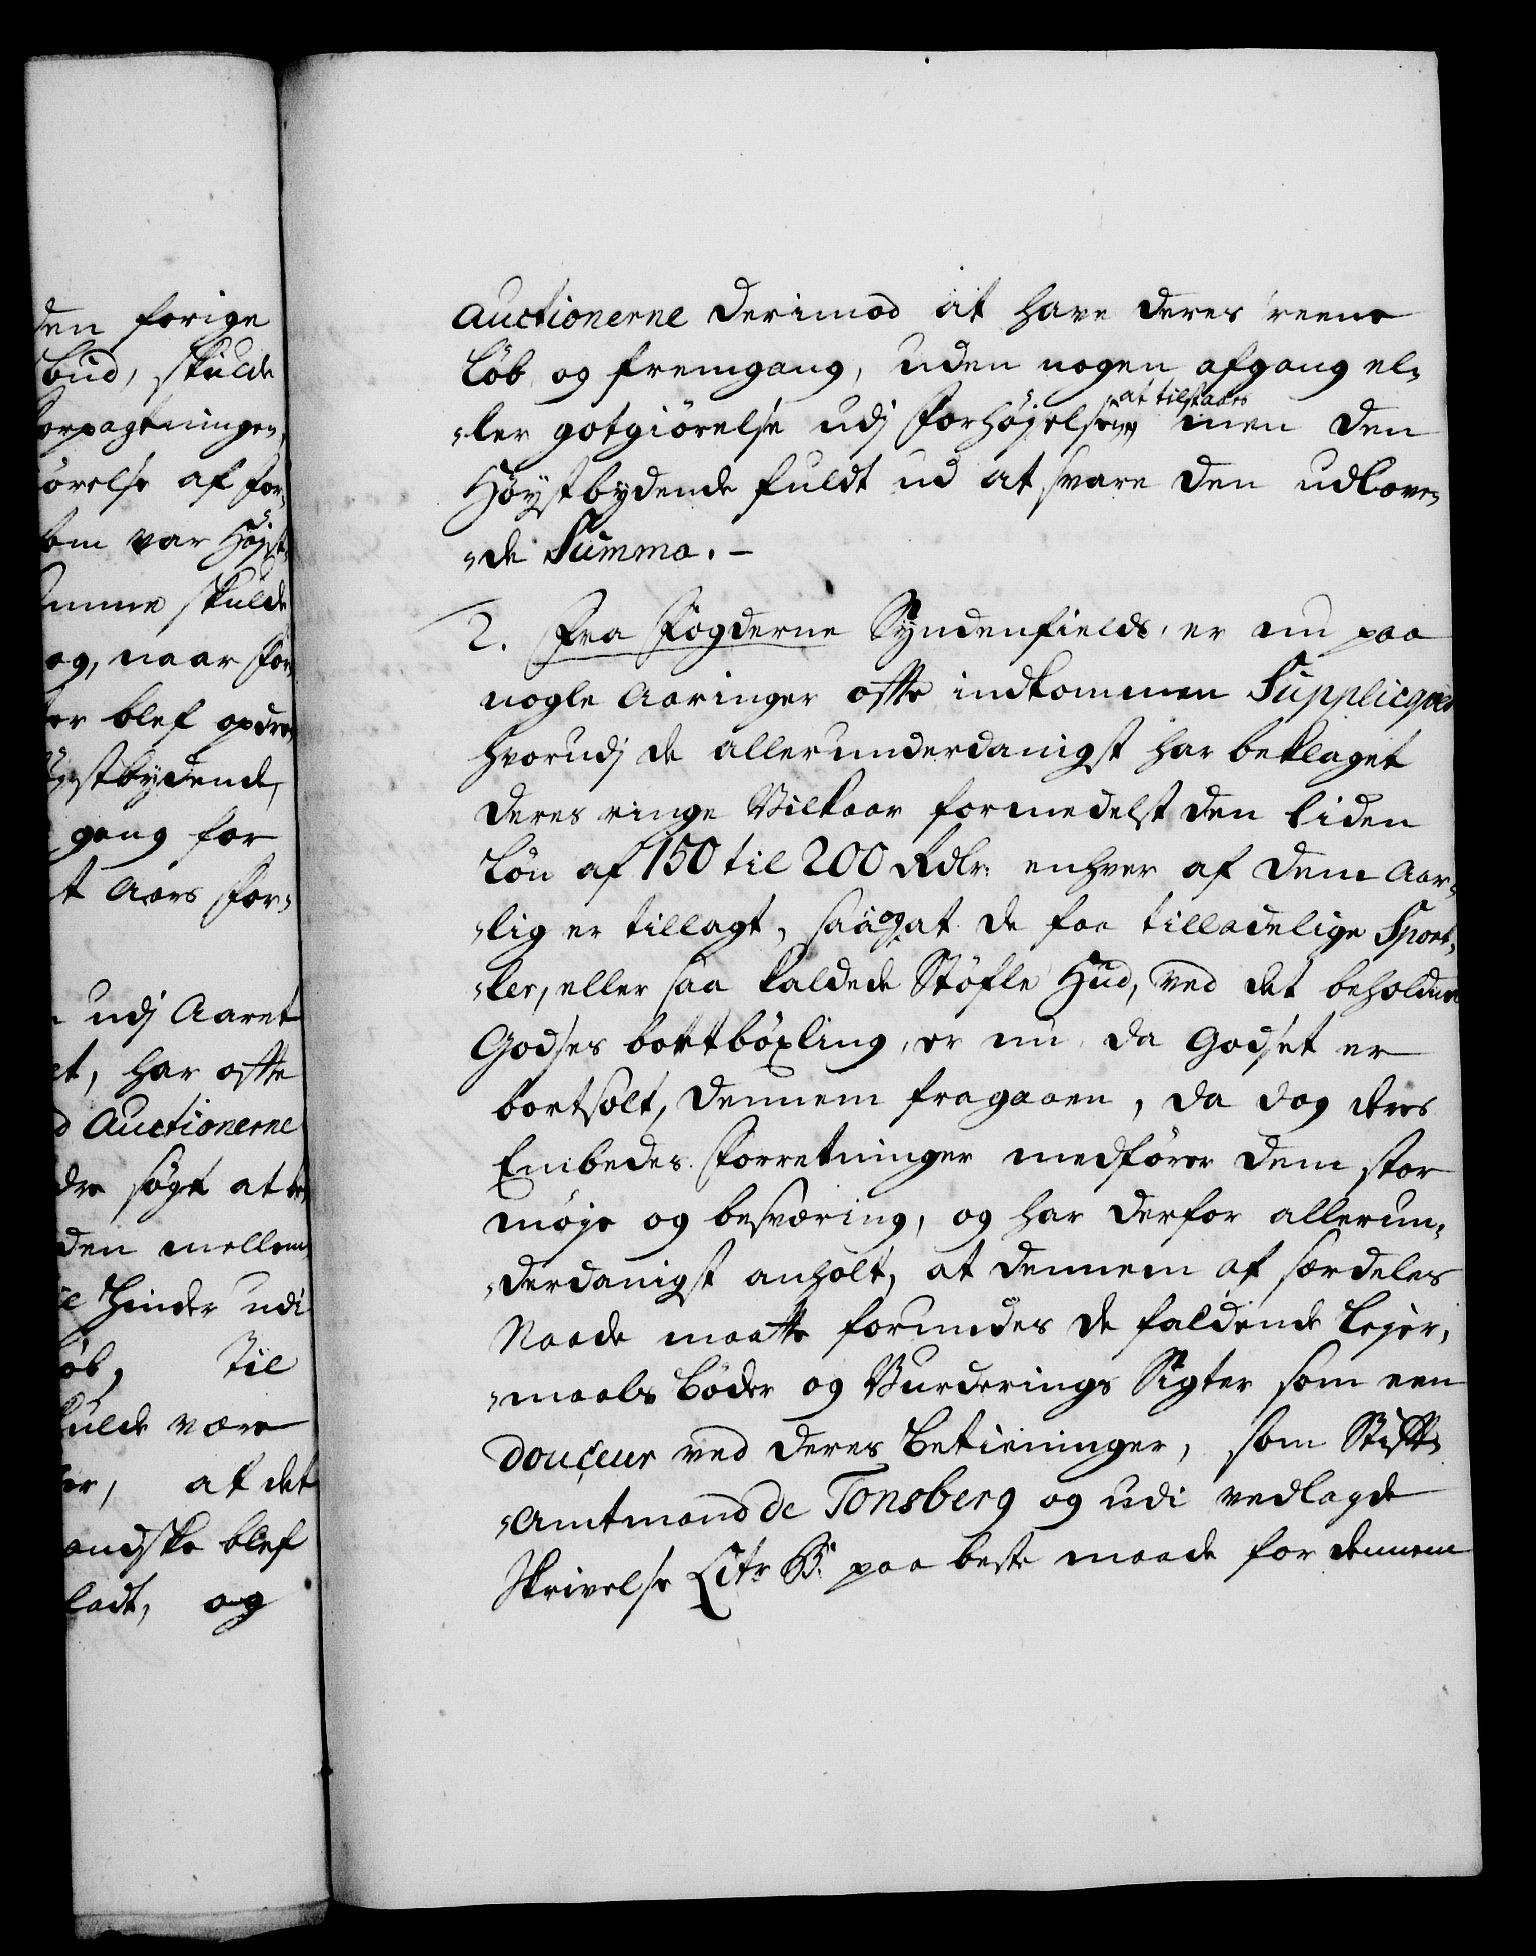 den forige
bud, skulde
orpagtningen,
ørelse af for-
om var Høyst-
umme skulde
og, naar for
er blef opdra
ystbydende,
gang for
t Aars for-
udj Aaret
et, har offte
d Auctionerne
dre søgt at be
den mellem
e Hinder udi
øb, til
kulde være
er, at det
andske blef
ladt, og
Auctionerne derimod at have deres reene
Løb og fremgang, uden nogen afgang el-
-ler gotgiørelse udj Forhøjelsen at tilstaaes men den
Høystbydende fuldt ud at svare den udlove-
-de Summa. -
2. Fra Fogderne Syndenfields, er nu paa
nogle Aaringer offte indkommen Supplicqver
hvorudj de allerunderdanigst har beklaget
deres ringe Vilkaar formedelst den liden
Løn af 150 til 200 Rdlr: enhver af dem Aar-
-lig er tillagt, saa og at de faa tilladelige Sport-
-ler, eller saa kaldede Støfle Hud, ved det beholdne
Godses bortbøxling, er nu, da Godset er
bortsolt, dennem fragaaen, da dog deres
Embedes Forretninger medfører dem stor
møje og besværing, og har derfor allerun-
-derdanigst anholt, at dennem af særdeles
Naade maatte forundes de faldende Lejer-
-maals Bøder og Vurderings Sigter som een
douceur ved deres Betieninger, som Stift-
-Amtmand de Tonsberg og udi vedlagde
Skrivelse Litr B. paa beste maade for dennem